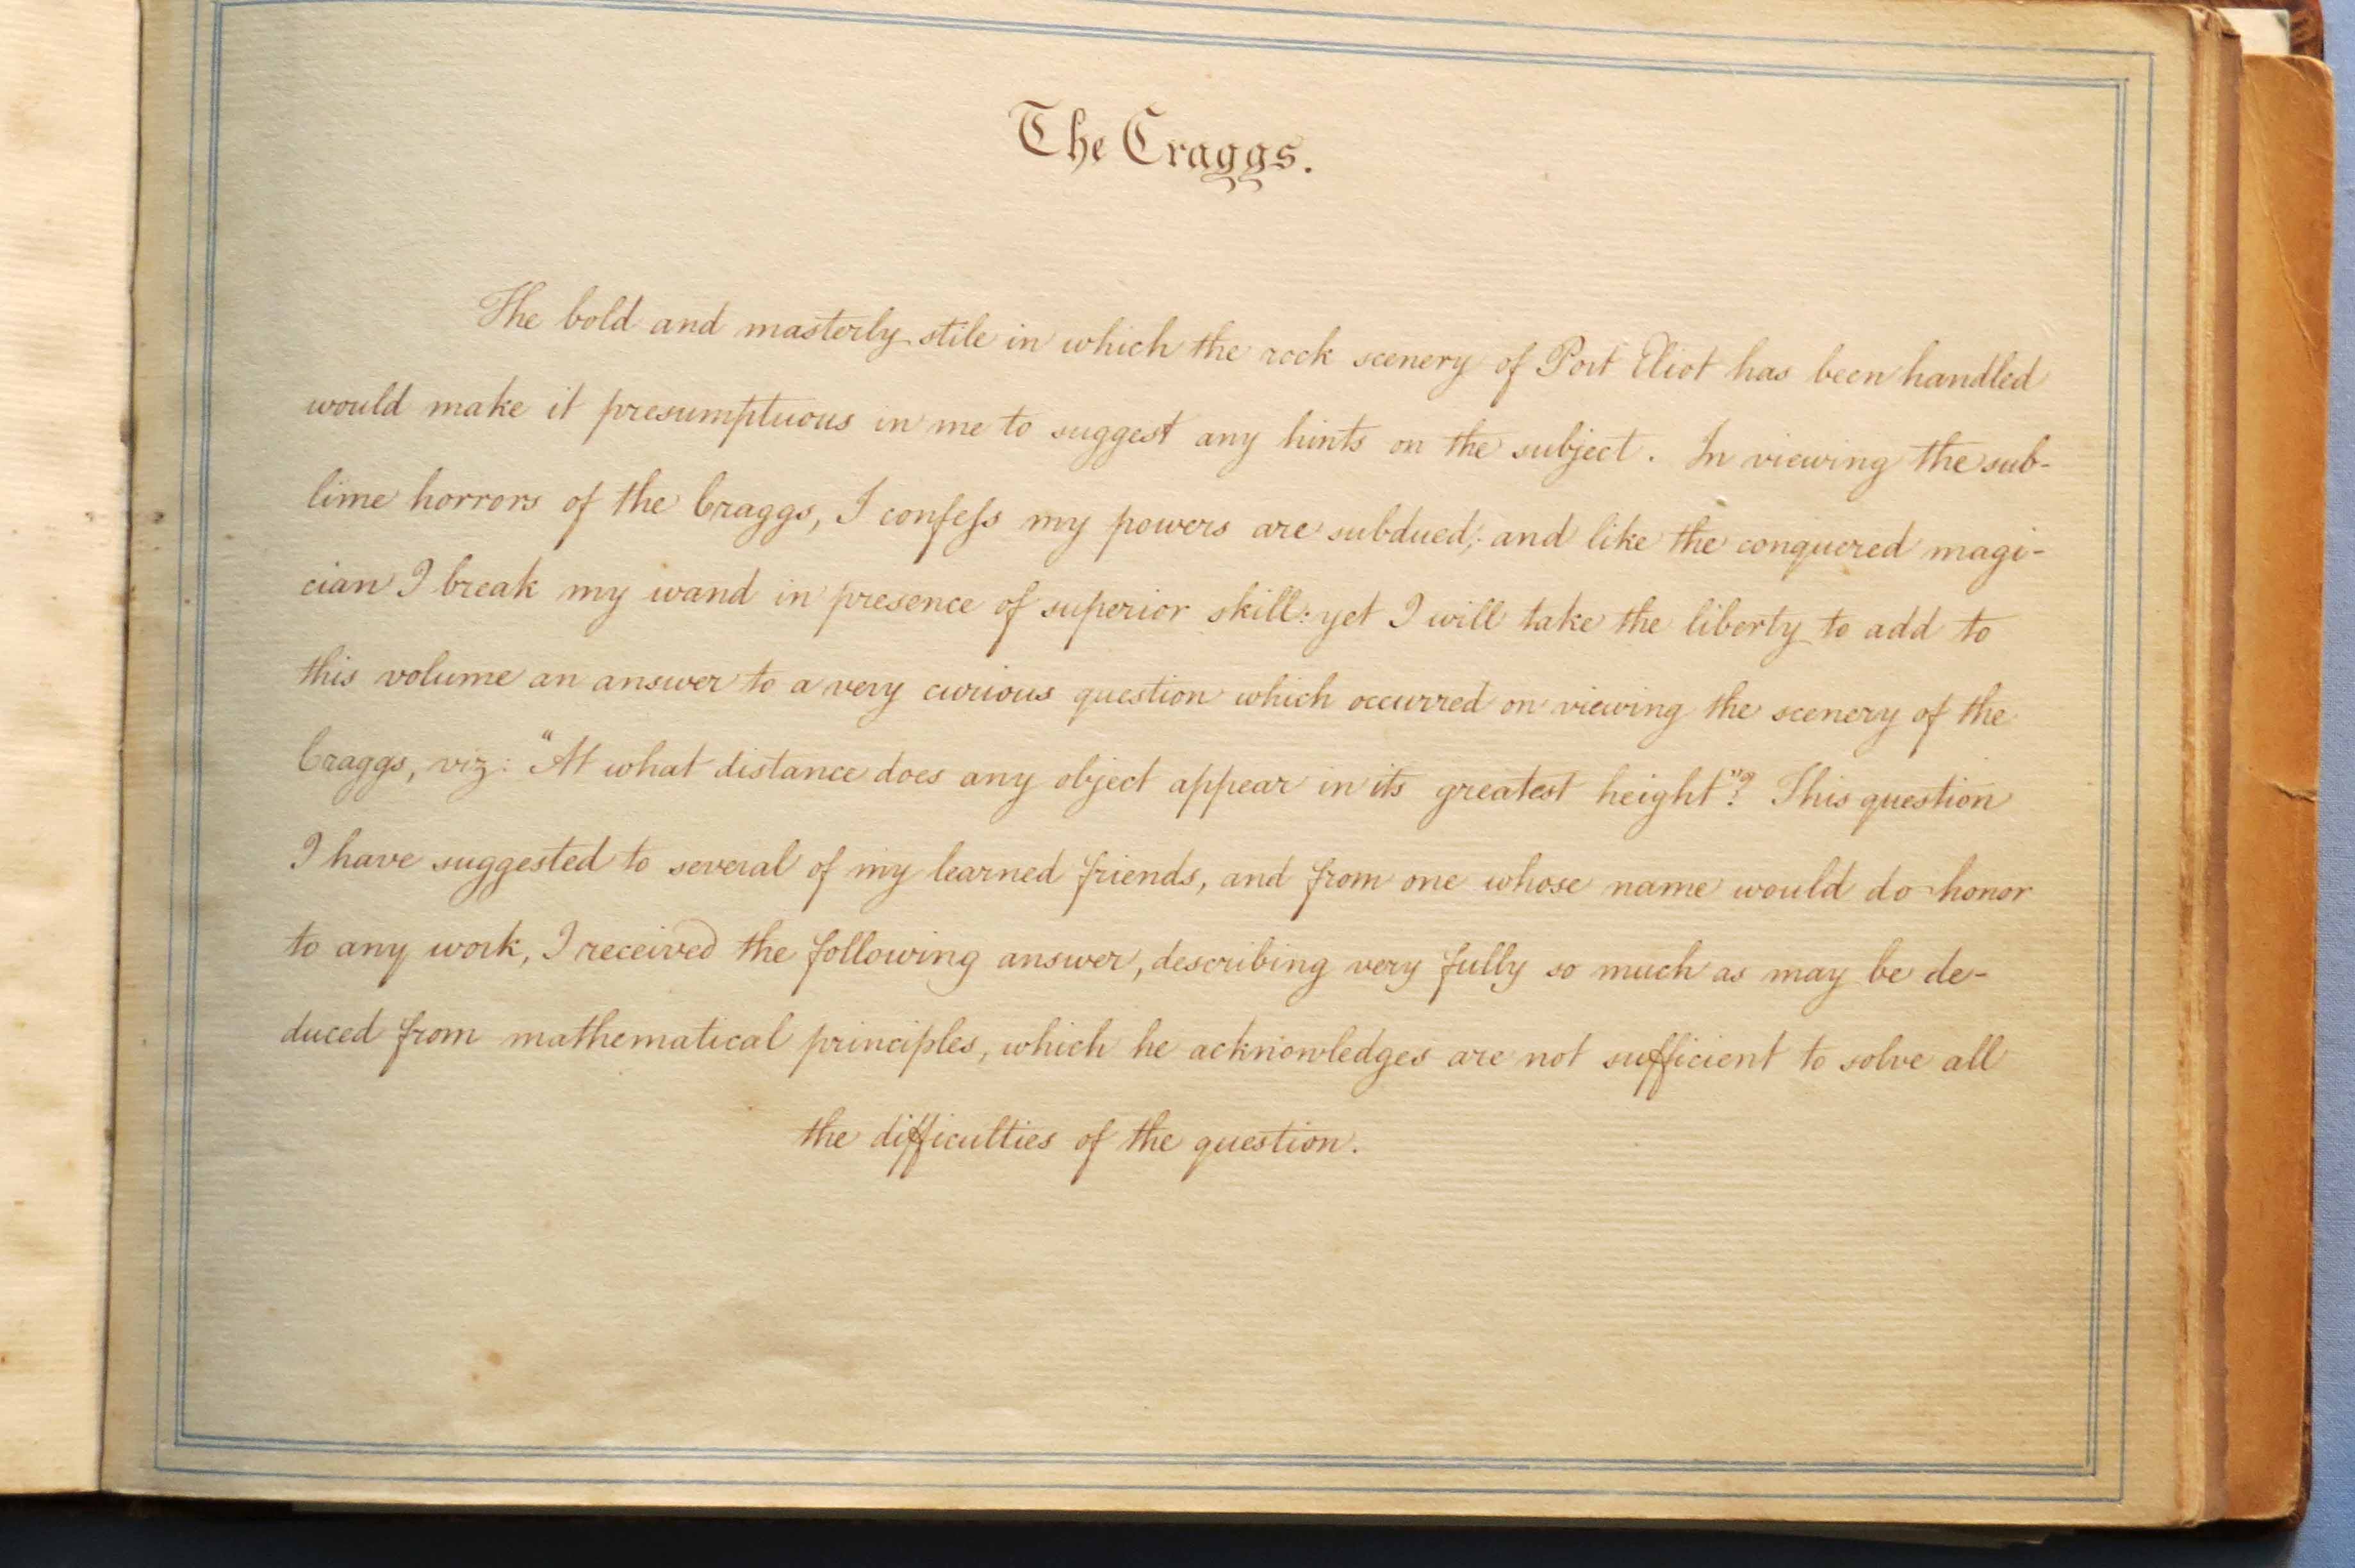 The Craggs.
The bold and masterly stile in which the rock scenery of Port Eliot has been handled
would make it presumptuous in me to suggest any hints on the subject. In viewing the sub-
lime horrors of the Craggs, I confeſs my powers are subdued; and like the conquered magi-
cian I break my wand in presence of superior skill: yet I will take the liberty to add to
this volume an answer to a very curious question which occurred on viewing the scenery of the
Craggs, viz: "At what distance does any object appear in its greatest height"? This question
I have suggested to several of my learned friends, and from one whose name would do honor
to any work, I received the following answer, describing very fully so much as may be de-
duced from mathematical principles, which he acknowledges are not sufficient to solve all
the difficulties of the question.